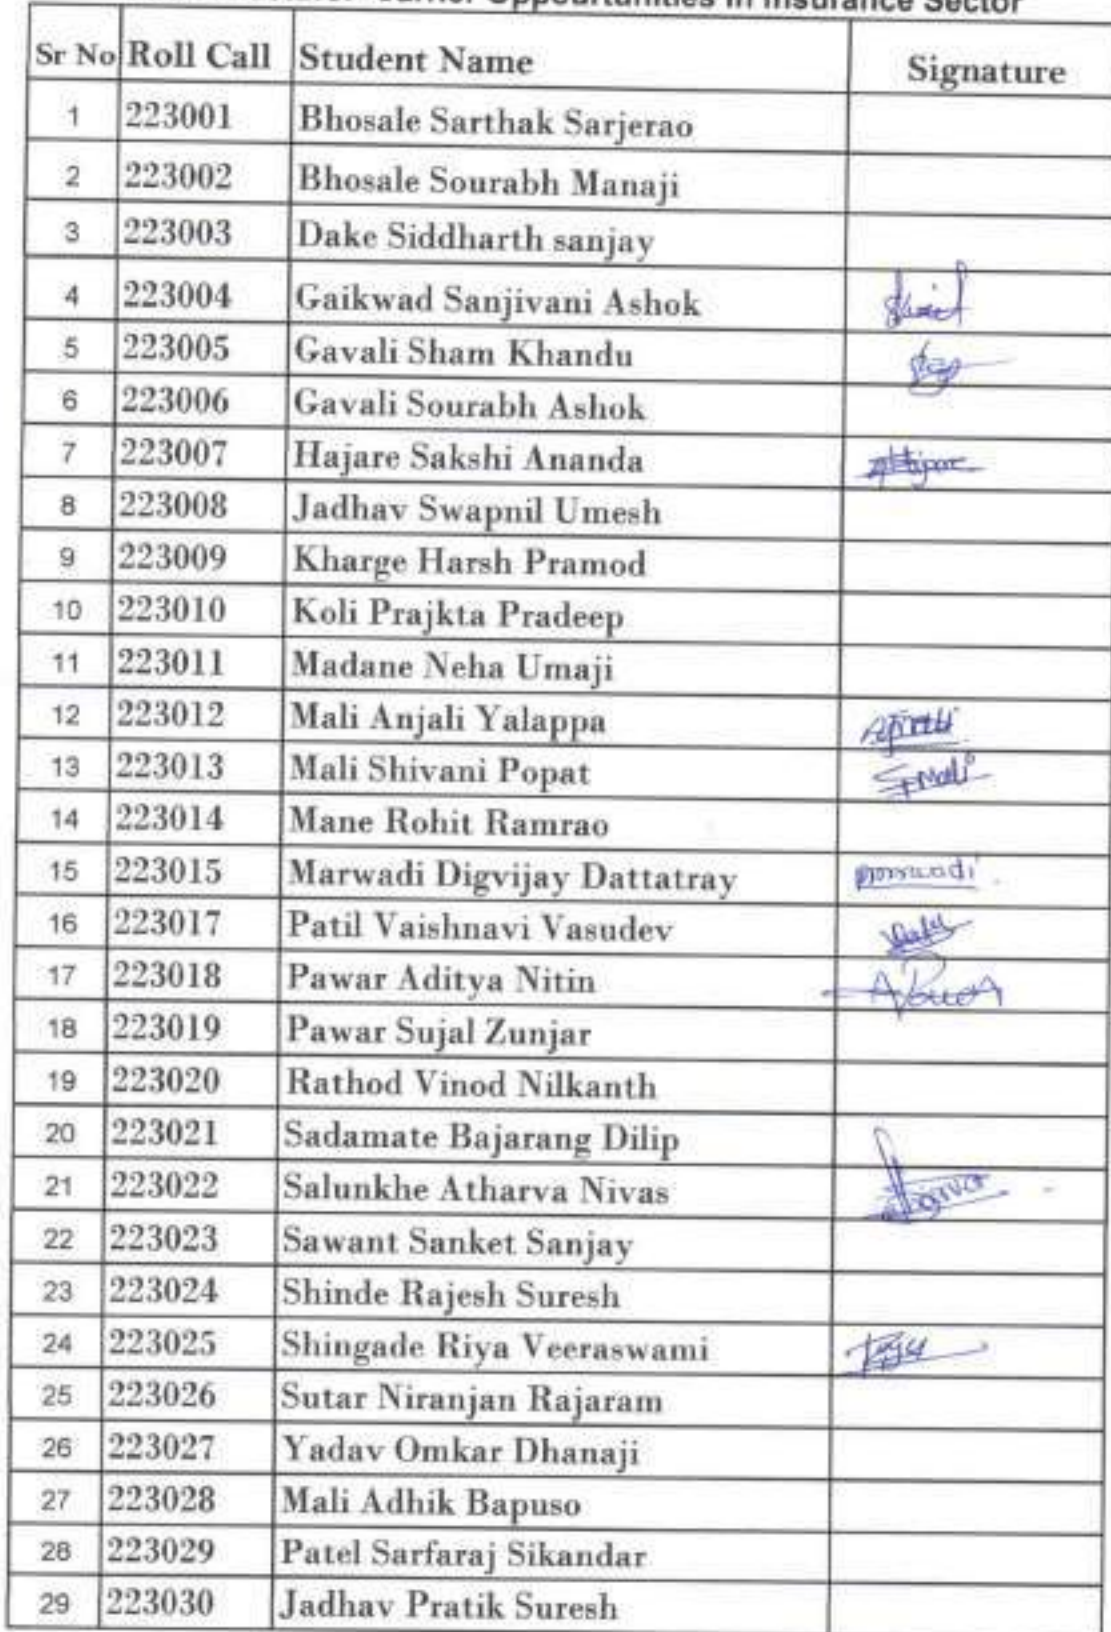 Oppourtunities in Insurance Sector
Sr No Roll Call Student Name Signature
1 223001 Bhosale Sarthak Sarjerao
2 223002 Bhosale Sourabh Manaji
3 223003 Dake Siddharth sanjay
4 223004 Gaikwad Sanjivani Ashok
5 223005 Gavali Sham Khandu
6 223006 Gavali Sourabh Ashok
7 223007 Hajare Sakshi Ananda
8 223008 Jadhav Swapnil Umesh
9 223009 Kharge Harsh Pramod
10 223010 Koli Prajkta Pradeep
11 223011 Madane Neha Umaji
12 223012 Mali Anjali Yalappa
13 223013 Mali Shivani Popat SPMali
14 223014 Mane Rohit Ramrao
15 223015 Marwadi Digvijay Dattatray
16 223017 Patil Vaishnavi Vasudev
17 223018 Pawar Aditya Nitin
18 223019 Pawar Sujal Zunjar
19 223020 Rathod Vinod Nilkanth
20 223021 Sadamate Bajarang Dilip
21 223022 Salunkhe Atharva Nivas
22 223023 Sawant Sanket Sanjay
23 223024 Shinde Rajesh Suresh
24 223025 Shingade Riya Veeraswami
25 223026 Sutar Niranjan Rajaram
26 223027 Yadav Omkar Dhanaji
27 223028 Mali Adhik Bapuso
28 223029 Patel Sarfaraj Sikandar
29 223030 Jadhav Pratik Suresh